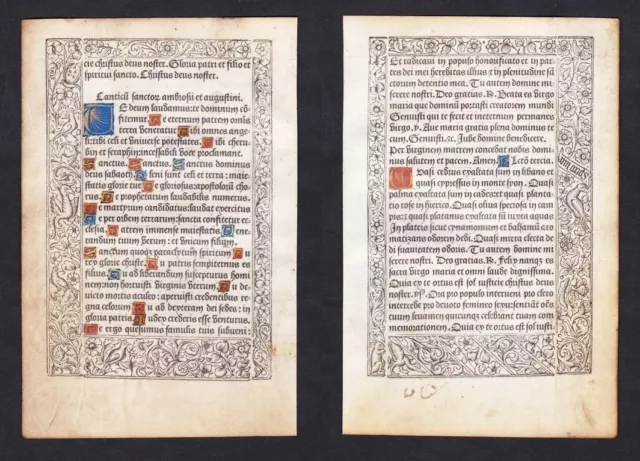 cie christus deus noster. Gloria patri et filio et
spiritui sancto. Christus deus noster.
Canticū sanctorū ambrosii et augustini.
E deum laudamus: te dominum cō
fitemur. Te eternum patrem omnis
terra veneratur Tibi omnes ange
li: tibi celi et universe potestates. Tibi cheru
bin et seraphin: incessabili voce proclamant.
Sanctus. Sanctus. Sanctus dominus
deus sabaoth. Pleni sunt celi et terra: maie
statis glorie tue Te gloriosus: apostolorū cho
rus. Te prophetarum laudabilis numerus.
Te martyrum candidatus: laudat exercitus
Te per orbem terrarum: sancta confitetur ec
clesia. Patrem immense maiestatis. Vene
randum tuum verum: et unicum filium.
Sanctum quoqz paraclytum spiritum Tu
rex glorie christe. Tu patris sempiternus es
filius. Tu ad liberandum suscepturus homi
nem: non horruisti virginis uterum. Tu de
victo mortis aculeo: aperuisti credentibus re
gna celorum Tu ad dexteram dei sedes: in
gloria patris Iudex crederis esse venturus.
Te ergo quesumus famulis tuis subveni:
Et radicavi in populo honorificato et in par
tes dei mei hereditas illius: et in plenitudine sā
ctorum detentio mea. Tu autem domine mi
serere nostri. Deo gratias. R. Beata es virgo
maria que dominū portasti creatorem mundi
Genuisti qui te fecit et ineternum permanes
virgo. v. Ave maria gratia plena dominus te
cum. Genuisti. rc. Jube domine benedicere.
Per virginem matrem concedat nobis domi
nus salutem et pacem. Amen. Lectō tercia.
Quasi cedrus exaltata sum in libano et
quasi cypressus in monte syon. Quasi
palma exaltata sum in cades: et quasi planta
tio rose in hierico. Quasi oliva speciosa in cam
pis: et quasi platanus exaltata sū iuxta aquas
In plateis sicut cynamomum et balsamū aro
matizans odorem dedi. Quasi mirra electa de
di suavitatem odoris. Tu autem domine mi
serere nostri. Deo gratias. R. Felix nanqz es
sacra virgo maria et omni laude dignissima.
Quia ex te ortus est sol iusticie christus deus
noster. Ora pro populo interveni pro clero
intercede pro devoto femineo sexu: sentiāt oēs
tuum iuvamen quicunqz celebrant tuam com
memorationem. Quia ex te ortus est sol iusti